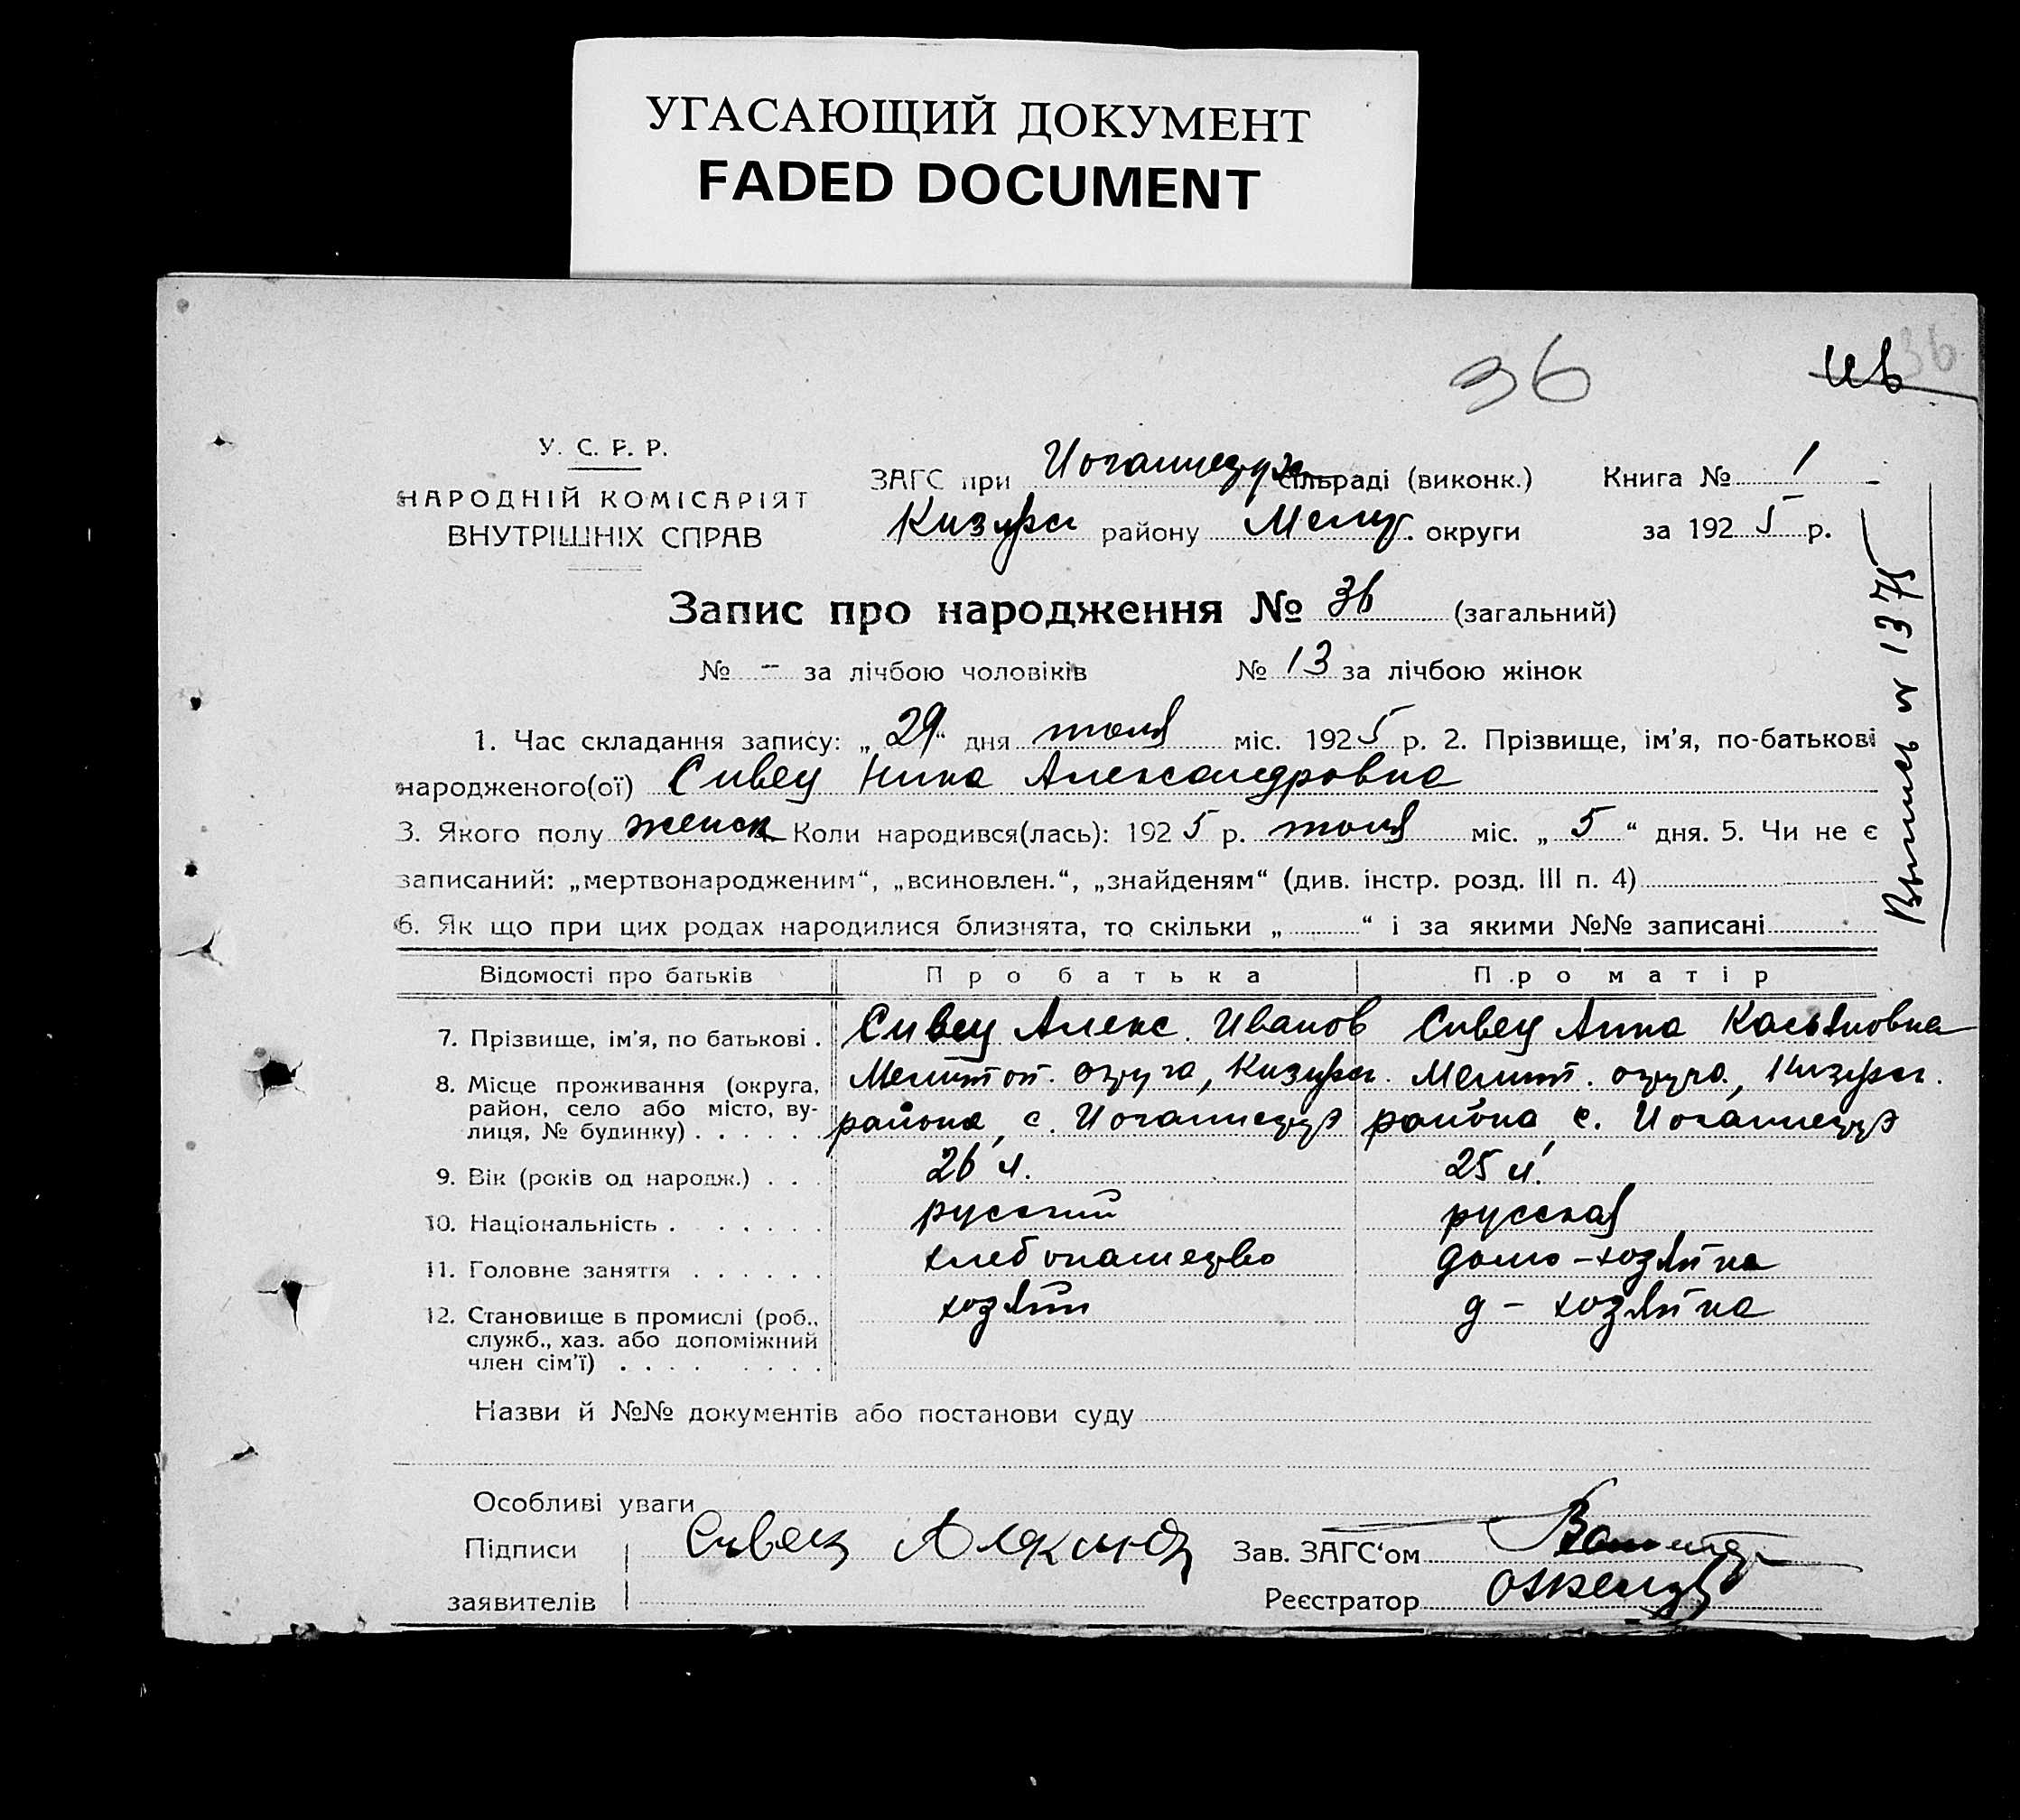 УГАСАЮЩИЙ ДОКУМЕНТ
FADED DOCUMENT
36
36
У. С. Р. Р.
НАРОДНІЙ КОМІСАРІЯТ
ВНУТРІШНІХ СПРАВ
ЗАГС при сільраді (виконк.) Книга № 1
району Мелит. округи за 1925 р.
Запис про народження № 36 (загальний)
№ - за лічбою чоловіків № 13 за лічбою жінок
1. Час складання запису: „29“ дня июля міс. 1925 р. 2. Прізвище, ім'я, по-батькові
народженого(ої) Сивец Нина Александровна
3. Якого полу женск Коли народився(лась): 1925 р. июля міс. „5“ дня. 5. Чи не є
записаний: „мертвонародженим“, „всиновлен.“, „знайденям“ (див. інстр. розд. III п. 4)
6. Як що при цих родах народилися близнята, то скільки „ “ і за якими №№ записані
Выпись № 1375
Відомості про батьків Про батька Про матір
7. Прізвище, ім'я, по батькові . Сивец Алекс. Иванов Сивец Анна Касьяновна
8. Місце проживання (округа, Мелитоп. округа, Мелит. округа,
район, село або місто, ву- района, с. района с.
лиця, № будинку) . . . . .
9. Вік (років од народж.) . . . 26 л. 25 л.
10. Національність . . . . . русский русская
11. Головне заняття . . . . . . хлебопашество домо-хозяйка
12. Становище в промислі (роб., хозяин д-хозяйка
служб., хаз. або допоміжний
член сім'ї) . . . . . . . .
Назви й №№ документів або постанови суду
Особливі уваги
Підписи Сивец Зав. ЗАГС'ом
заявителів Реєстратор